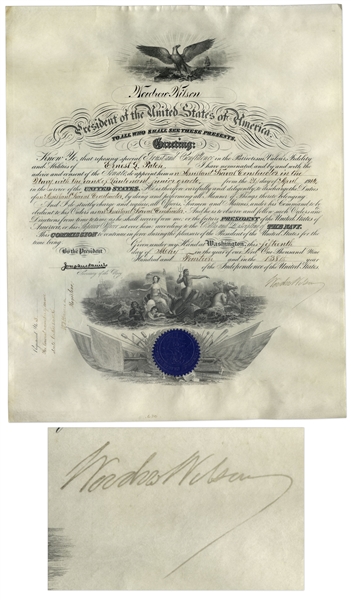 Woodrow Wilson
President of the United States of America.
TO ALL WHO SHALL SEE THESE PRESENTS,
Greeting:
Know Ye, that reposing special Trust and Confidence in the Patriotism, Valor, Fidelity
and Abilities of Ernest G. I have nominated and by and with the
advice and consent of the Senate do appoint him
Navy, with the rank of lieutenant, junior grade from the day of
in the service of the UNITED STATES. He is therefore carefully and diligently to discharge the Duties
of by doing and performing all Manner of Things thereto belonging.
And I do strictly charge and require all Officers, Seamen and Marines under his Command to be
obedient to his Orders as And he is to observe and follow such Orders and
Directions from time to time as he shall receive from me or the future PRESIDENT of the United States of
America, or his Superior Officer set over him, according to the Rules and Discipline of THE NAVY.
This COMMISSION to continue in force during the pleasure of the President of the United States for the
time being.
Given under my Hand at Washington, this fifteenth
By the President day of in the year of our Lord One Thousand Nine
Hundred and Fourteen and in the year
Josephus Daniels of the Independence of the United States.
Secretary of the Navy
Woodrow Wilson
Woodrow Wilson